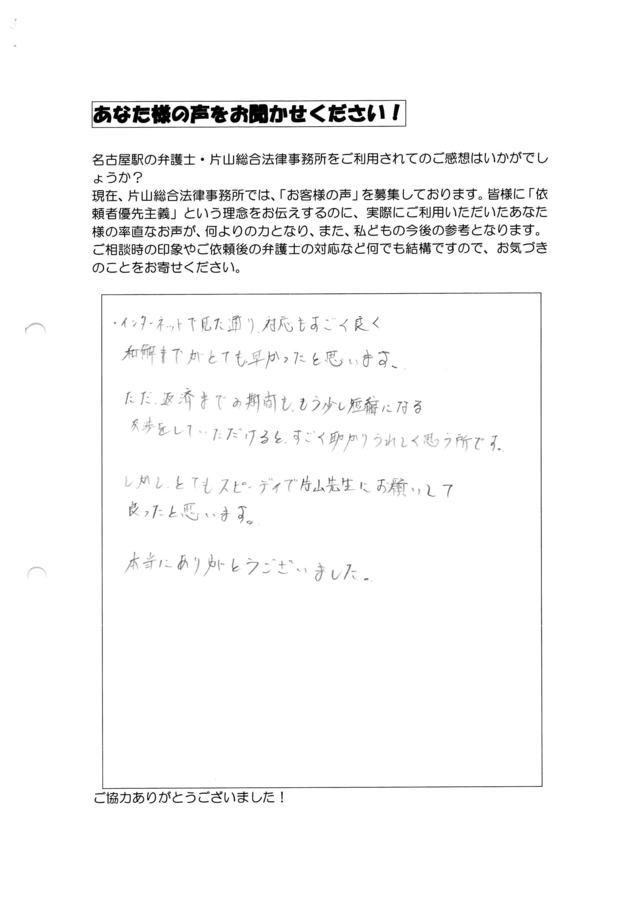 あなた様の声をお聞かせください！
名古屋駅の弁護士・片山総合法律事務所をご利用されてのご感想はいかがでし
ょうか？
現在、片山総合法律事務所では、「お客様の声」を募集しております。皆様に「依
頼者優先主義」という理念をお伝えするのに、実際にご利用いただいたあなた
様の率直なお声が、何よりの力となり、また、私どもの今後の参考となります。
ご相談時の印象やご依頼後の弁護士の対応など何でも結構ですので、お気づき
のことをお寄せください。
・インターネットで見た通り、対応もすごく良く
和解までがとても早かったと思います。
ただ、返済までの期間も、もう少し短縮になる
をしていただけると、すごく助かりうれしく思う所です。
しかし、とてもスピーディで片山先生にお願いして
良ったと思います。
本当にありがとうございました。
ご協力ありがとうございました！